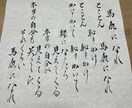 馬鹿になれ
とことん馬鹿になれ
恥をかけ
とことん恥をかけ
かいてかいて恥かいて
裸になったら見えてくる
本当の自分が見えてくる
本当の自分も
馬鹿になれ